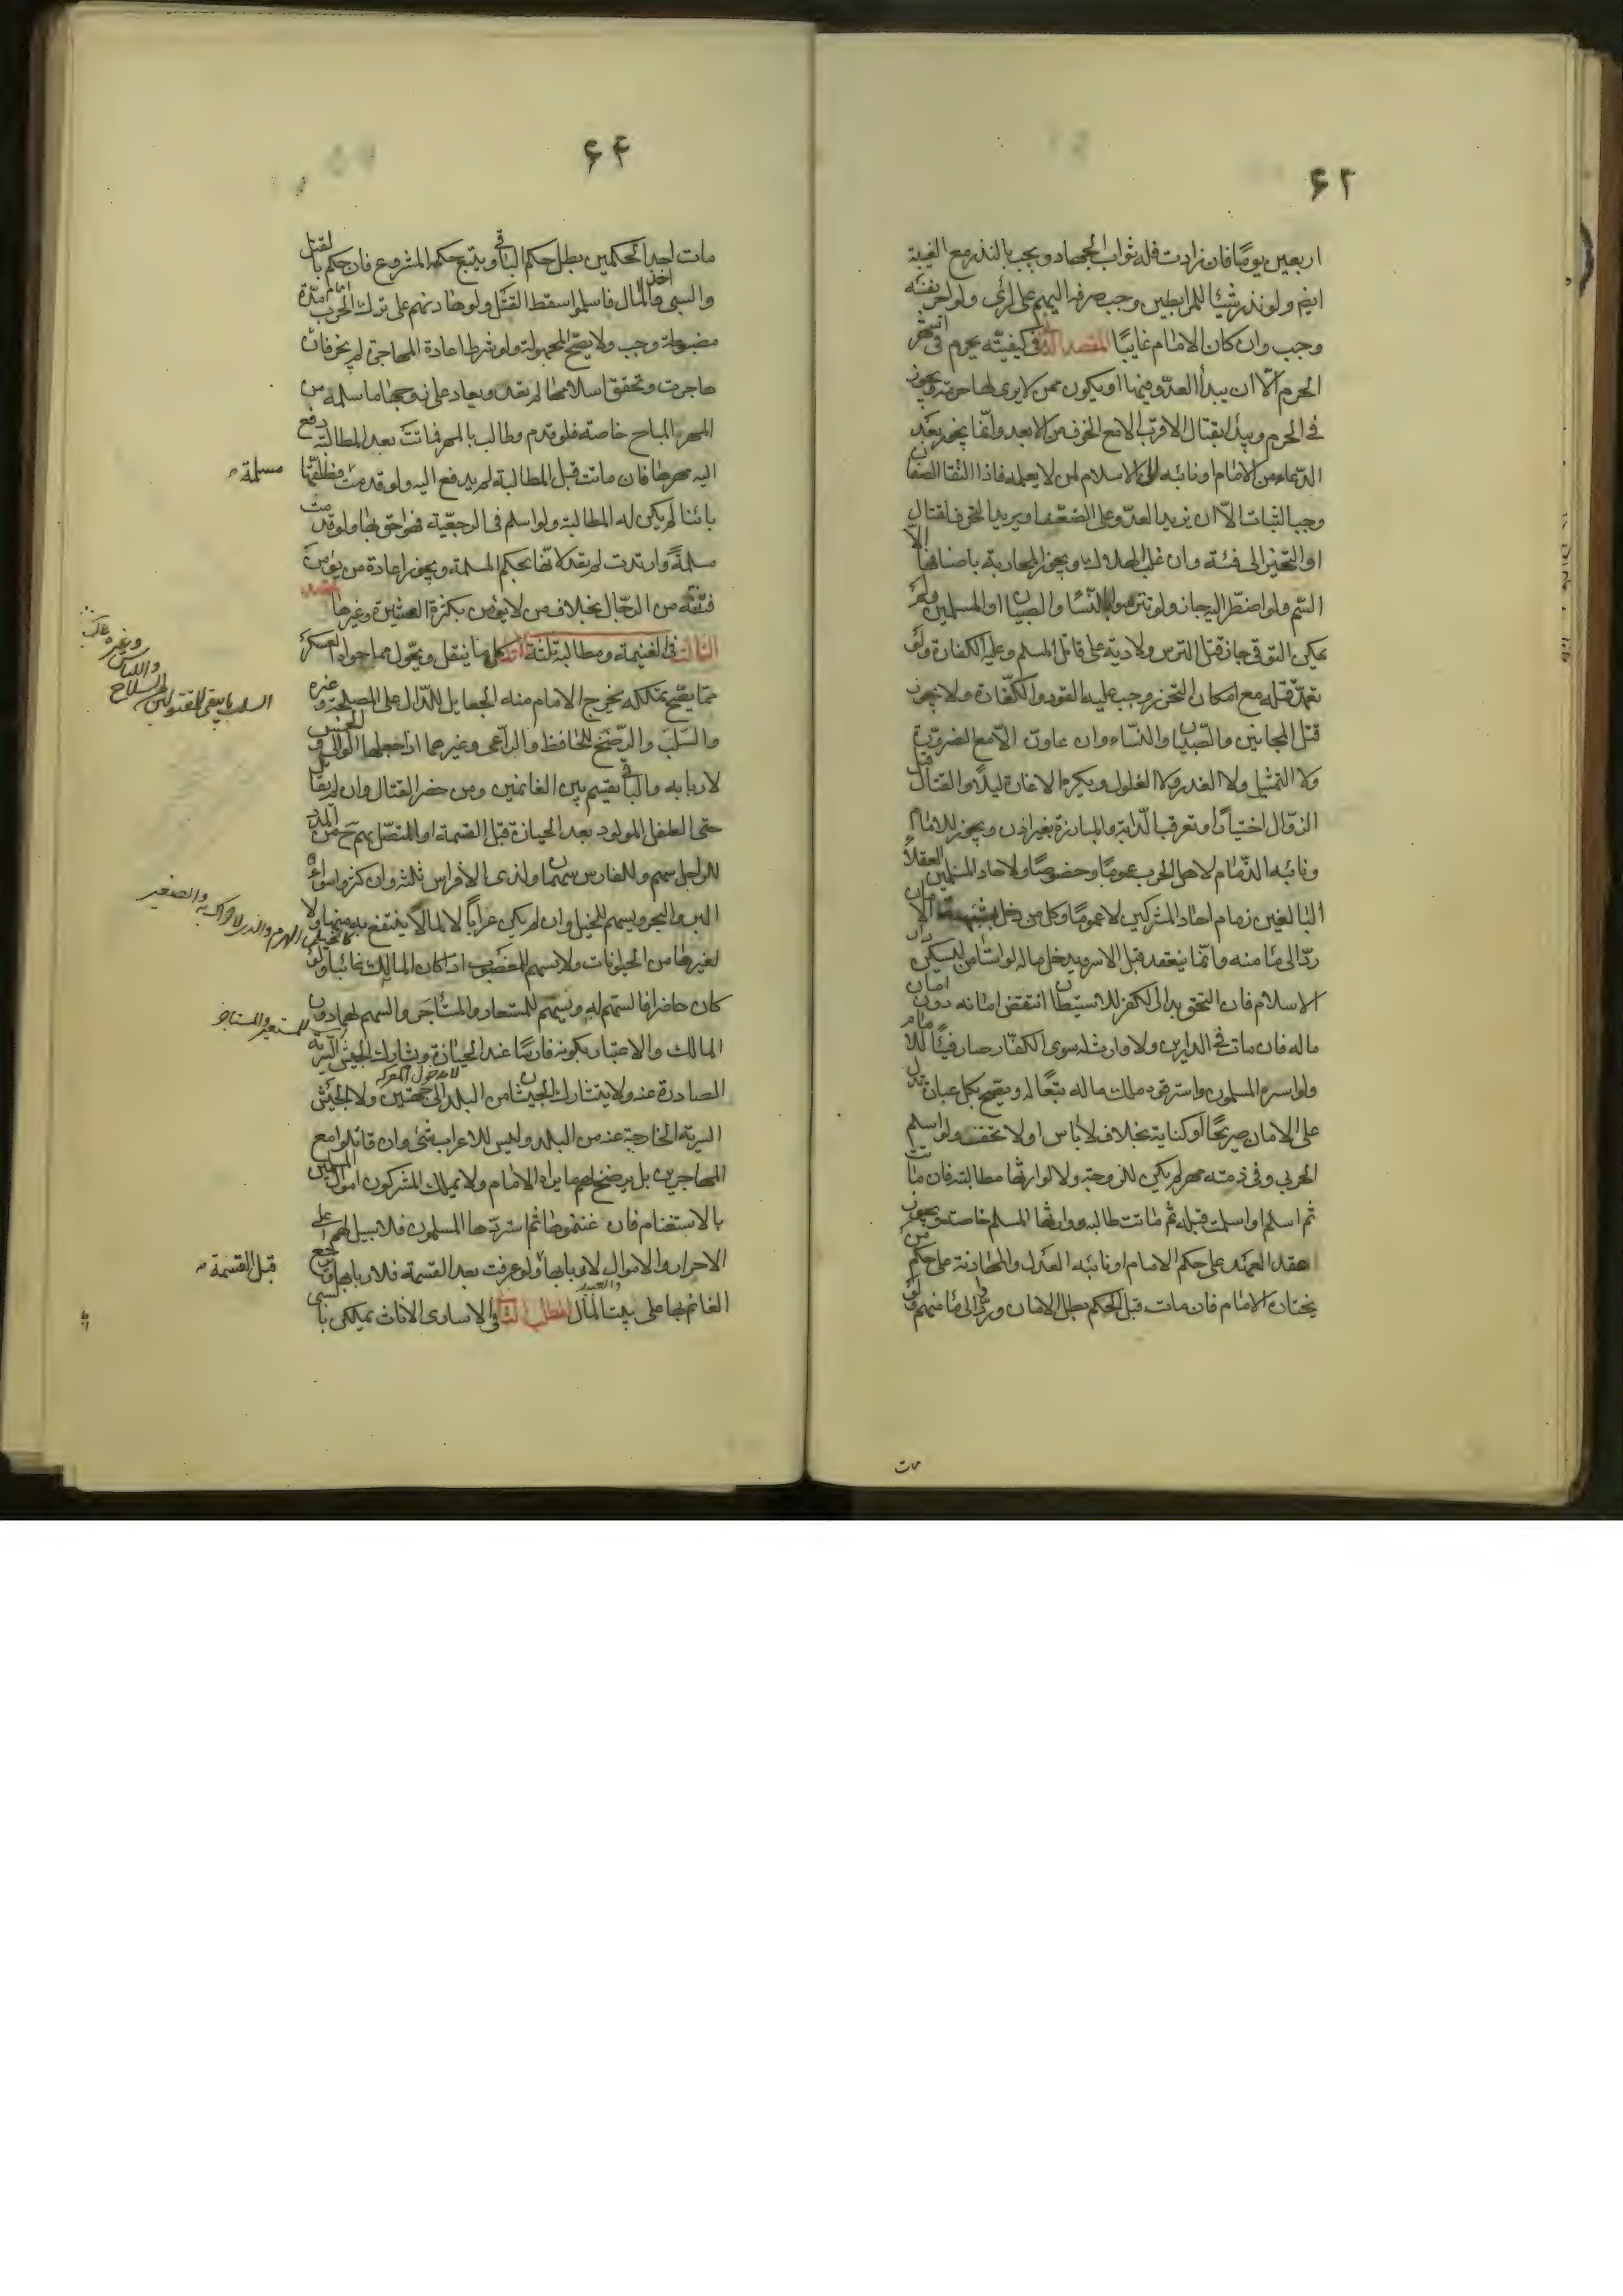 ۶۲
اربعين يومًا فان زادت فله ثواب الجهاد ويجب بالنذر مع الغيبة
ايضم ولو نذر شيئا للمرابطين وجب صرفه اليهم على الرأى ولو اجر نفسه
وجب وان كان الامام غايبًا المقصد الثانى فى كيفيته يحرم فى اشهر
الحرم الّا ان يبدأ العدو فيها او يكون ممن لا يرى لها حرمة ويجوز
فى الحرم ويبدأ بقتال الاقرب الامع الخوف من الابعد وانّما يجوز بعد
الدعاء من الامام او نائبه الى الاسلام لمن لا يعلمه فاذا التقا الصفان
وجب الثبات الّا ان يزيد العدو على الضعف او يريد التحرف لقتال
او التحيز الى فئة وان غلب الهلاك ويجوز المحاربة باصنافها الّا
السّم ولو اضطرّ اليه جاز ولو تترسوا بالنّساء والصبيان او المسلمين ولم
يمكن التوقى جاز قتل الترس ولا دية على قاتل المسلم وعليه الكفارة ولو
تعمّد قتله مع امكان التحرز وجب عليه القود والكفّارة ولا يجوز
قتل المجانين والصّبيان والنّساء وان عاون الّا مع الضرورة
ولا التمثيل ولا الغدر ولا الغلول ويكره الاغارة ليلًا والقتال قبل
الزوال اختيارًا وتعرقب الدّابة والمبارزة بغير اذن ويجوز للامام
ونائبه الذّمام لاهل الحرب عمومًا وخصوصًا ولآحاد المسلمين العقلاء
البالغين زمام احاد المشركين لا عمومًا وكل من دخل بشبهة الامان
ردّ الى مأمنه وانّما ينعقد قبل الاسر ويدخل ماله لو استأمن ليسكن دار
الاسلام فان التحق بدار الكفر للاستيطان انتقض امانه دون امان
ماله فان مات فى الدارين ولا وارث له سوى الكفّار صار فيئًا للامام
ولو اسره المسلمون واسترقوه ملك ماله تبعًا له ويصح بكل عبارة تدل
على الامان صريحًا او كناية بخلاف لا باس او لا تخف ولو اسلم
الحربي وفى ذمته مهر لم يكن للزوجة ولا لوارثها مطالبته فان ماتت
ثم اسلم او اسلمت قبله ثم ماتت طالبه وارثها المسلم خاصة ويجوز
عقد العهد على حكم الامام او نائبه العدل والمهادنة على حكم من
يختاره الامام فان مات قبل الحكم بطل الامان وردّوا الى مأمنهم ولو
مات
۶۴
مات احد الحكمين بطل حكم الباقى ويتبع حكمه المشروع فان حكم بالقتل
والسبى واخذ المال فاسلموا سقط القتل ولو هادنهم على ترك الحرب مدّة
مضبوطة وجب ولا يصحّ المجهولة ولو شرط اعادة المهاجرة لم يجز فان
هاجرت وتحقق اسلامها لم تعد ويعاد على زوجها ما سلمه من
المهر المباح خاصة فلو قدم وطالب بالمهر فماتت بعد المطالبة دفع
اليه مهرها فان ماتت قبل المطالبة لم يدفع اليه ولو قدمت فطلقها
مسلمة
بائنا لم يكن له المطالبة ولو اسلم فى الرجعيّة فهو احق بها ولو قدمت
مسلمةً وارتدت لم تعد لانّها بحكم المسلمة ويجوز اعادة من يؤمن
فتنته من الرجال بخلاف من لا يؤمن بكثرة العشيرة وغيرها المقصد
الثالث فى الغنيمة ومطالبه ثلثة كل ما ينقل ويحوّل مما حواه العسكر
ممّا يصحّ تملكه يخرج الامام منه الجعايل للدّال على المصلحة وغيره
السلب ما يبقى للمقتول من السلاح
واللباس
وغيره
والسّلب والرّضخ للحافظ والراعى وغيرهما ان جعلها الوالى والخمس
لاربابه والباقى يقسم بين الغانمين ومن حضر القتال وان لم يقاتل
حتى الطفل المولود بعد الحيازة قبل القسمة او المتصّل بهم ح من المدد
للراجل سهم وللفارس سهمان ولذى الافراس ثلثة وان كثروا سواء
البر والبحر ويسهم للخيل وان لم يكن عرابًا لا لما لا ينتفع به منها ولا
الهرم والذى لا حراك به والصغير
لغيرها من الحيوانات ولا يسهم للمغصوب اذا كان المالك غائبا ولو
كان حاضرا فالسهم له ويسهم للمستعار والمستأجر والسهم لهما دون
للمستعير والمستاجر
المالك والاعتبار بكونه فارسًا عند الحيازة ويشارك الجيش السرية
لا بدخول المعركة
الصادرة عنه ولا يتشارك الجيشان من البلد الى جهتين ولا الجيش
السرية الخارجة عنه من البلد وليس للاعراب شئ وان قاتلوا مع
المهاجرين بل يرضخ لهم ما يراه الامام ولا يملك المشركون اموال المسلمين
بالاستغنام فان غنموها ثم استردّها المسلمون فلا سبيل لهم على
الاحرار والاموال لاربابها ولو عرفت بعد القسمة فلاربابها ويرجع
قبل القسمة
والعبيد
الغانم بها على بيت المال المطلب الثانى فى الاسارى الاناث يملكن بالسبى